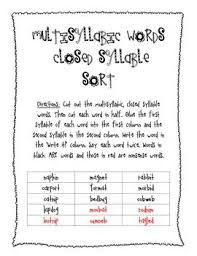 Multisyllabic Words
Closed Syllable
Sort
Directions: Cut out the multisyllabic, closed syllable
words. Then cut each word in half. Glue the first
syllable of each word into the first column and
the second syllable in the second column. Write the word in
the "Write it" column. Say each word twice. Words in
black ARE words and those in red are nonsense words.
napkin magnet rabbit
carport format morbid
catnip bedbug cobweb
lapdog